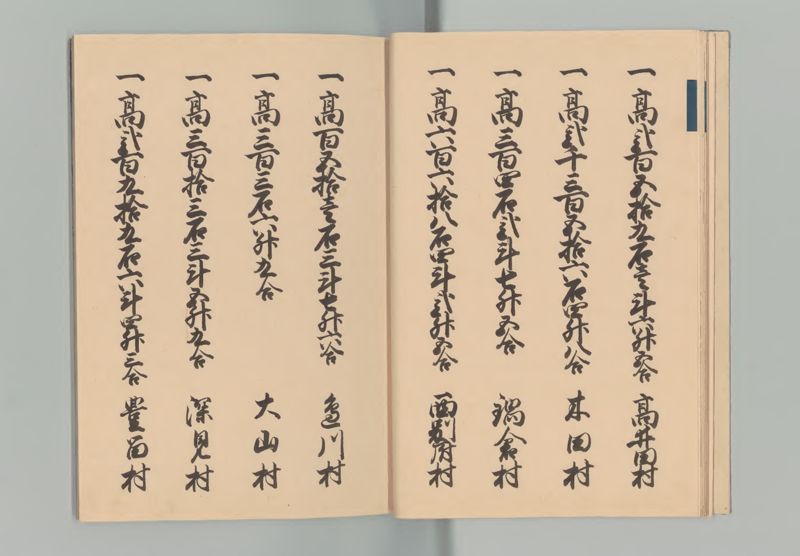 一高弐百五拾九石壱斗六升五合 高井田村
一高弐千三百五拾六石四升八合 本田村
一高三百四石弐斗七升五合 鴻倉村
一高六百六拾八石四斗弐升五合 西別府村
一高百五拾壱石三斗七升六合 川村
一高三百三石六升九合 大山村
一高三百拾三石三斗五升九合 深見村
一高弐百九拾九石六斗四升三合 豊留村